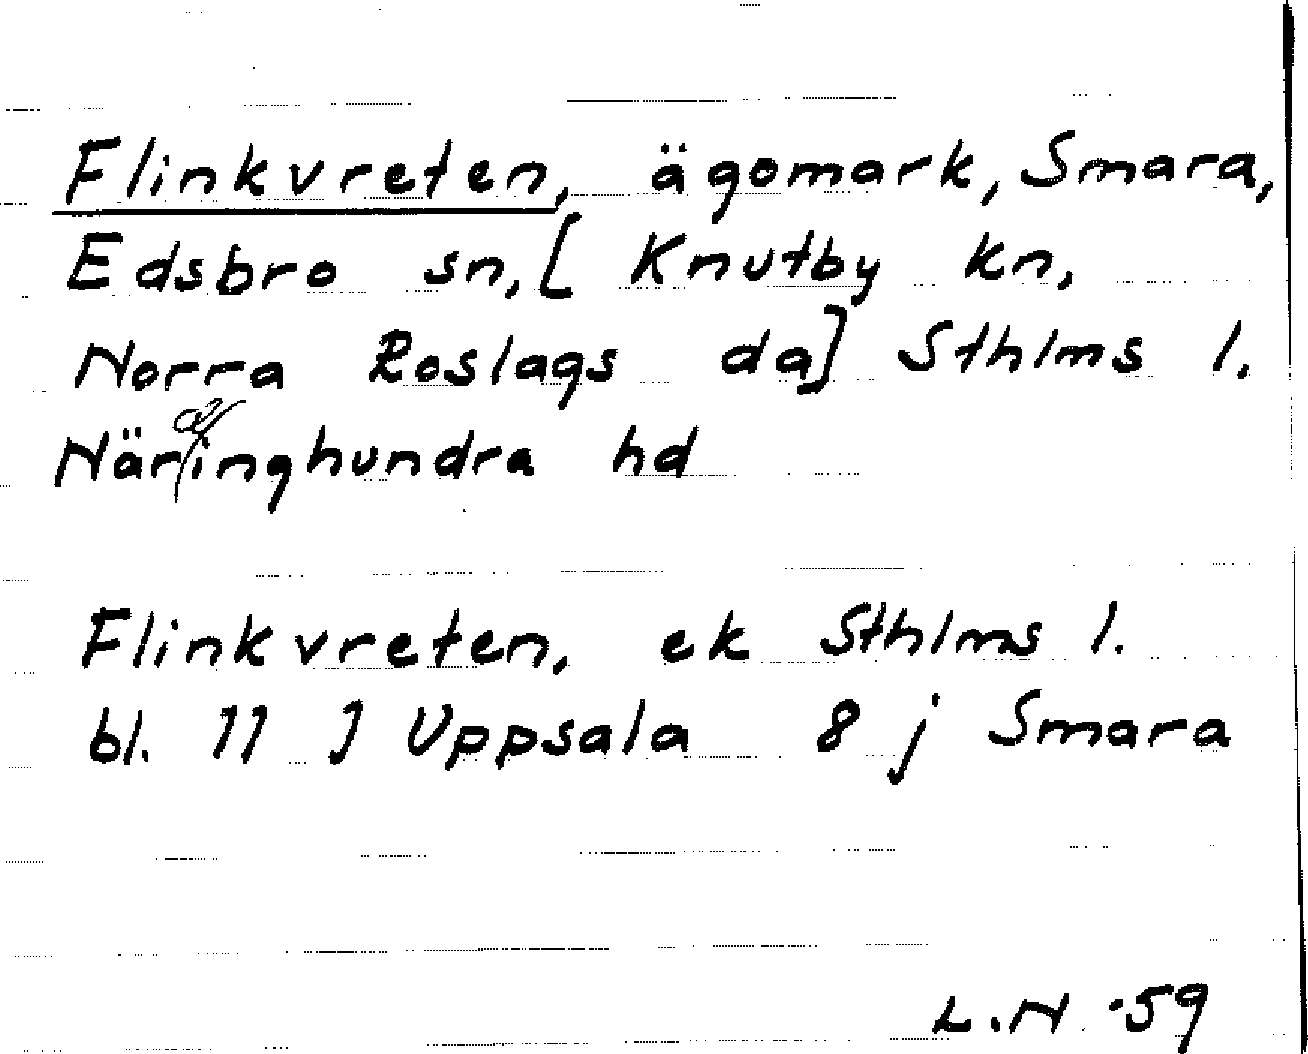 Flinkvreten, ägomark, Smara,
Edsbro sn, [ Knutby kn,
Norra Roslags da] Sthlms l.
Närdinghundra hd
Flinkvreten, ek Sthlms l.
bl. 11 J Uppsala 8 j Smara
L.N -59